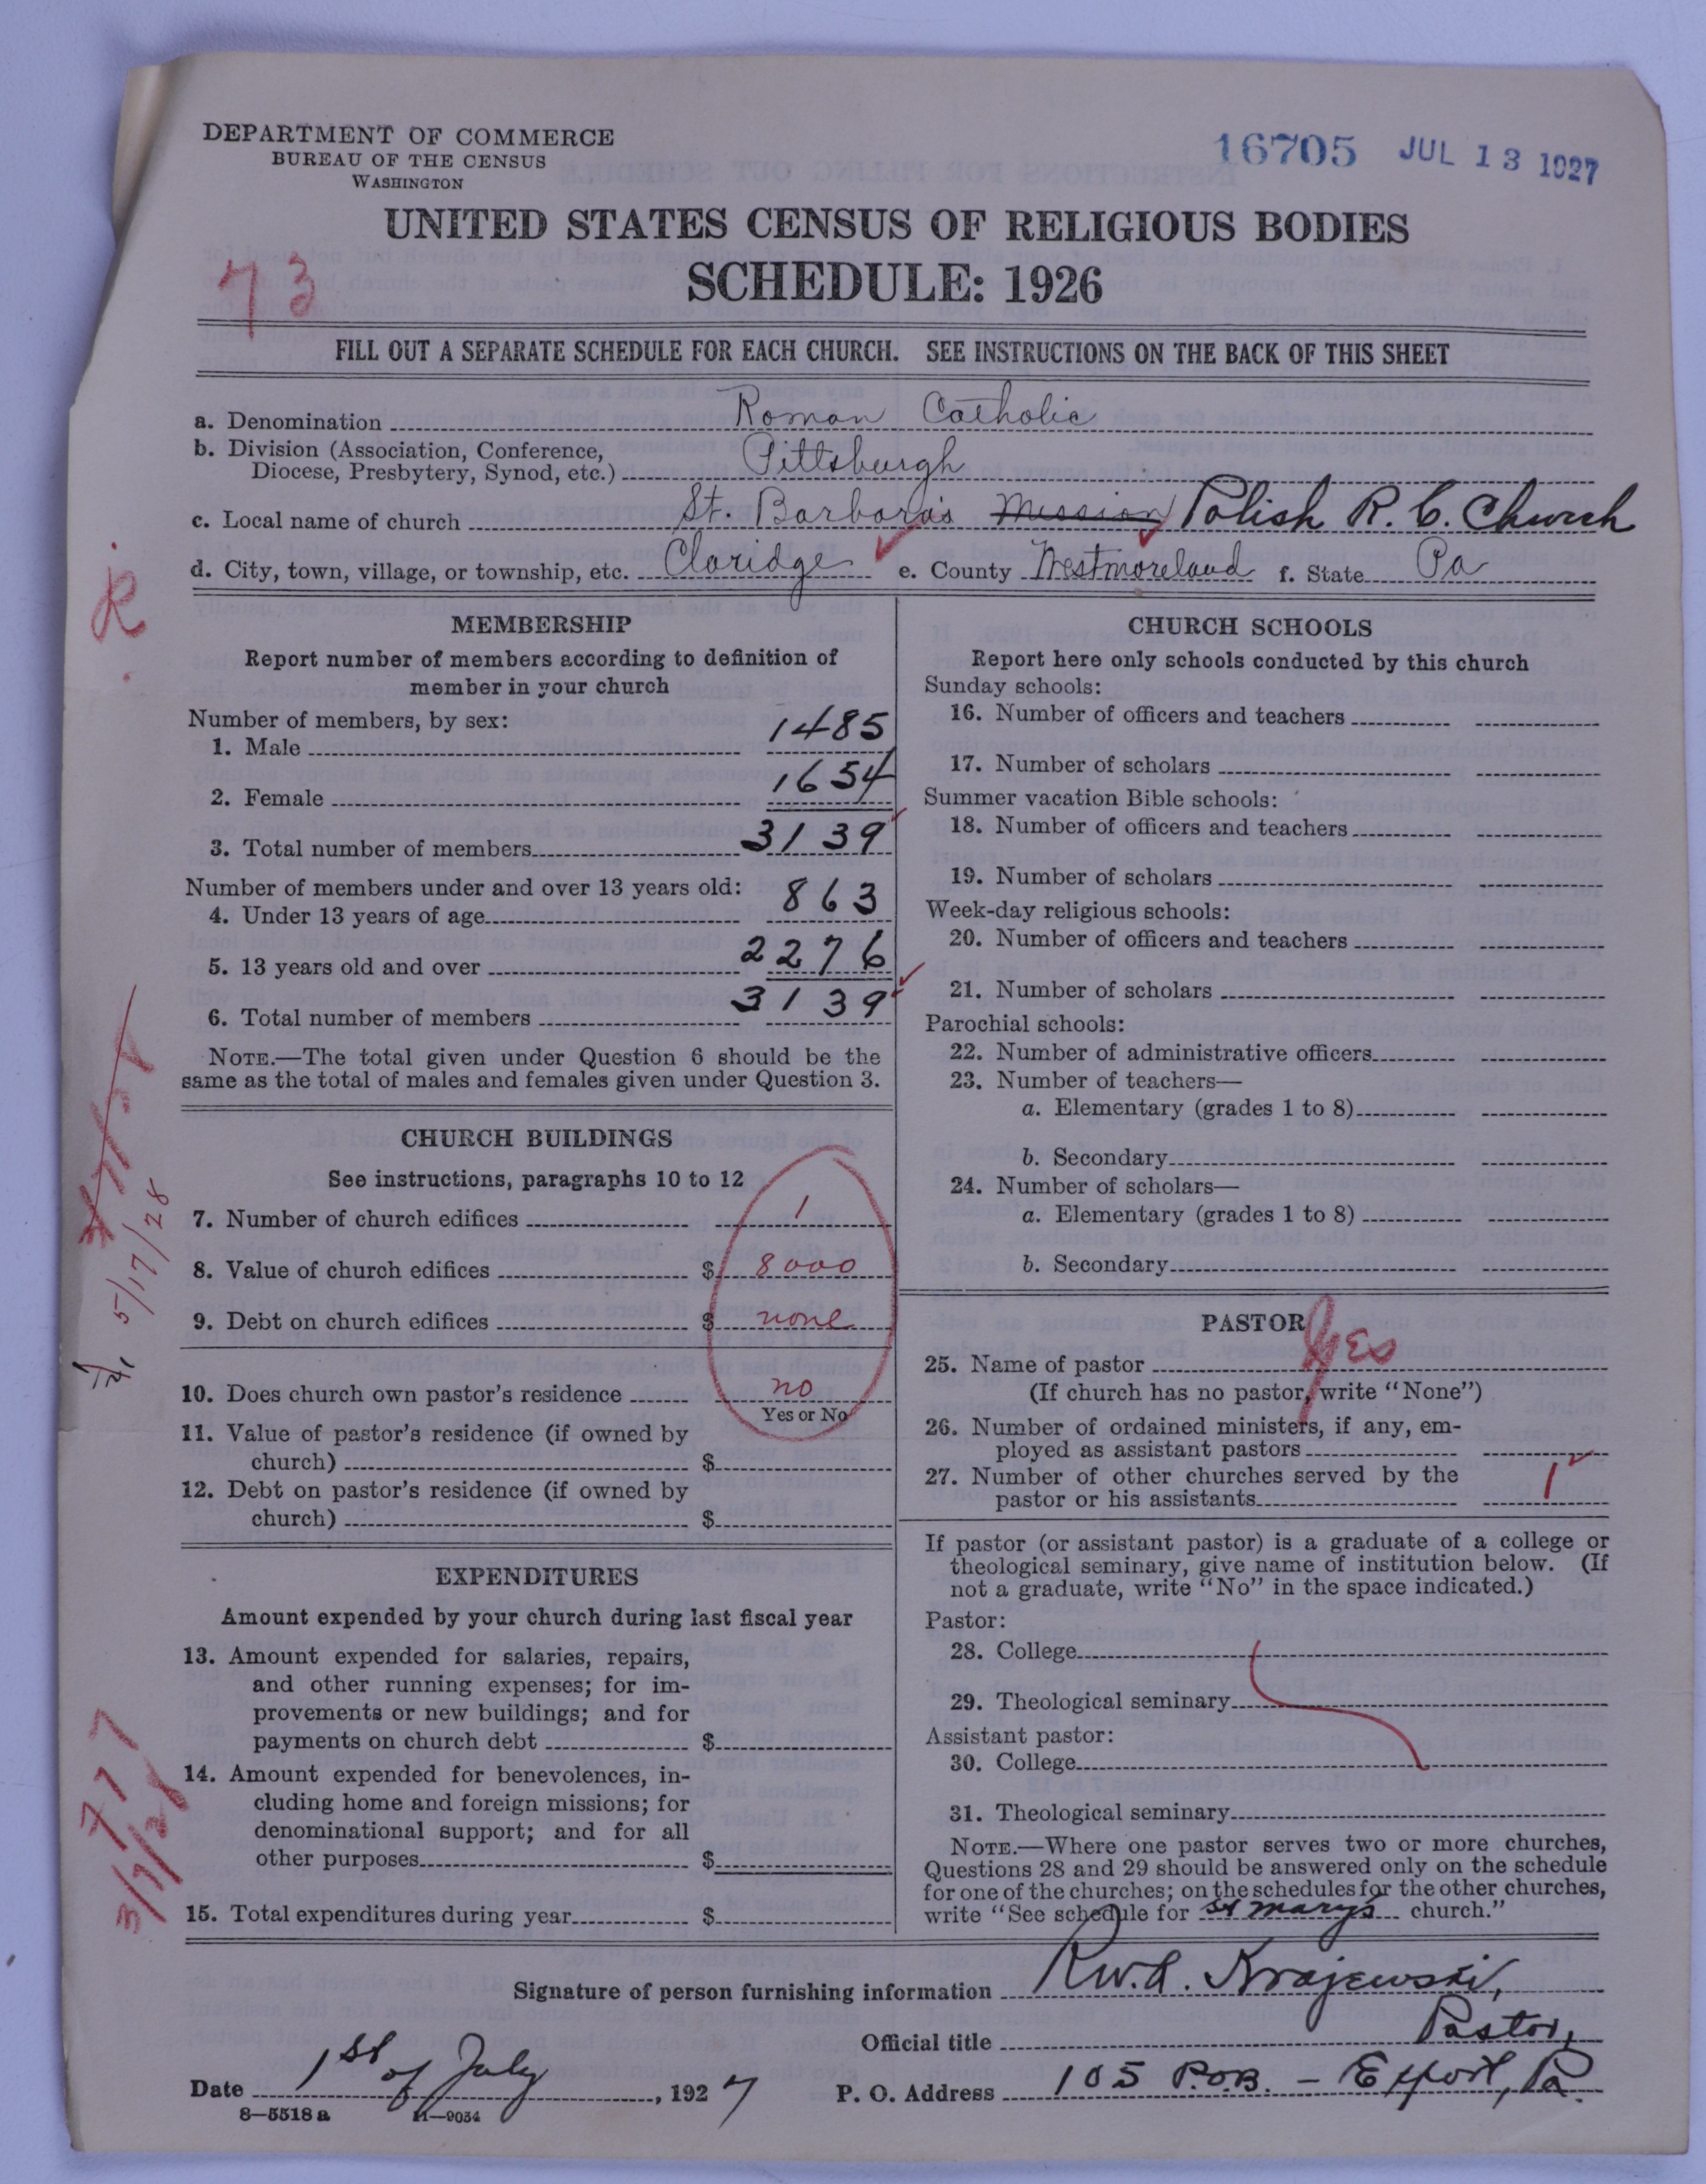 DEPARTMENT OF COMMERCE
BUREAU OF THE CENSUS
WASHINGTON
16705 JUL 13 1927
UNITED STATES CENSUS OF RELIGIOUS BODIES
SCHEDULE: 1926
73
FILL OUT A SEPARATE SCHEDULE FOR EACH CHURCH. SEE INSTRUCTIONS ON THE BACK OF THIS SHEET
a. Denomination Roman Catholic
b. Division (Association, Conference,
Diocese, Presbytery, Synod, etc.) Pittsburgh
c. Local name of church St. Barbara's Mission Polish R. C. Church
d. City, town, village, or township, etc. Claridge e. County Westmoreland f. State Pa
MEMBERSHIP
Report number of members according to definition of
member in your church
Number of members, by sex:
1. Male 1485
2. Female 1654
3. Total number of members 3139
Number of members under and over 13 years old:
4. Under 13 years of age 863
5. 13 years old and over 2276
6. Total number of members 3139
NOTE.—The total given under Question 6 should be the
same as the total of males and females given under Question 3.
CHURCH BUILDINGS
See instructions, paragraphs 10 to 12
7. Number of church edifices 1
8. Value of church edifices $ 8000
9. Debt on church edifices $ none
10. Does church own pastor's residence no
Yes or No
11. Value of pastor's residence (if owned by
church) $
12. Debt on pastor's residence (if owned by
church) $
EXPENDITURES
Amount expended by your church during last fiscal year
13. Amount expended for salaries, repairs,
and other running expenses; for im-
provements or new buildings; and for
payments on church debt $
14. Amount expended for benevolences, in-
cluding home and foreign missions; for
denominational support; and for all
other purposes $
15. Total expenditures during year $
5/17/28
CHURCH SCHOOLS
Report here only schools conducted by this church
Sunday schools:
16. Number of officers and teachers
17. Number of scholars
Summer vacation Bible schools:
18. Number of officers and teachers
19. Number of scholars
Week-day religious schools:
20. Number of officers and teachers
21. Number of scholars
Parochial schools:
22. Number of administrative officers
23. Number of teachers—
a. Elementary (grades 1 to 8)
b. Secondary
24. Number of scholars—
a. Elementary (grades 1 to 8)
b. Secondary
PASTOR
25. Name of pastor Yes
(If church has no pastor, write "None")
26. Number of ordained ministers, if any, em-
ployed as assistant pastors
27. Number of other churches served by the
pastor or his assistants 1
If pastor (or assistant pastor) is a graduate of a college or
theological seminary, give name of institution below. (If
not a graduate, write "No" in the space indicated.)
Pastor:
28. College
29. Theological seminary
Assistant pastor:
30. College
31. Theological seminary
NOTE.—Where one pastor serves two or more churches,
Questions 28 and 29 should be answered only on the schedule
for one of the churches; on the schedules for the other churches,
write "See schedule for St Mary's church."
Signature of person furnishing information Rev. A. Krajewski,
Official title Pastor,
Date 1st of July, 1927 P. O. Address 105 P.O.B. - Export, Pa.
8—5518 a 11—9034